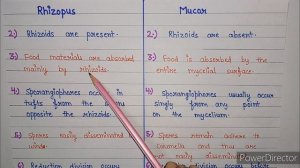 Rhizopus
Mucor
2.) Rhizoids are present.
2.) Rhizoids are absent.
3.) Food materials are absorbed
mainly by rhizoids.
3.) Food is absorbed by the
entire mycelial surface.
4.) Sporangiophores occur in
tufts from the
opposite the rhizoids.
4.) Sporangiophores usually occur
singly from any point
on the mycelium.
5.) Spores easily disseminated
winds.
5.) Spores remain adhere to
columella and thus are
not easily disseminated
6.) Reduction division occurs
PowerDirector